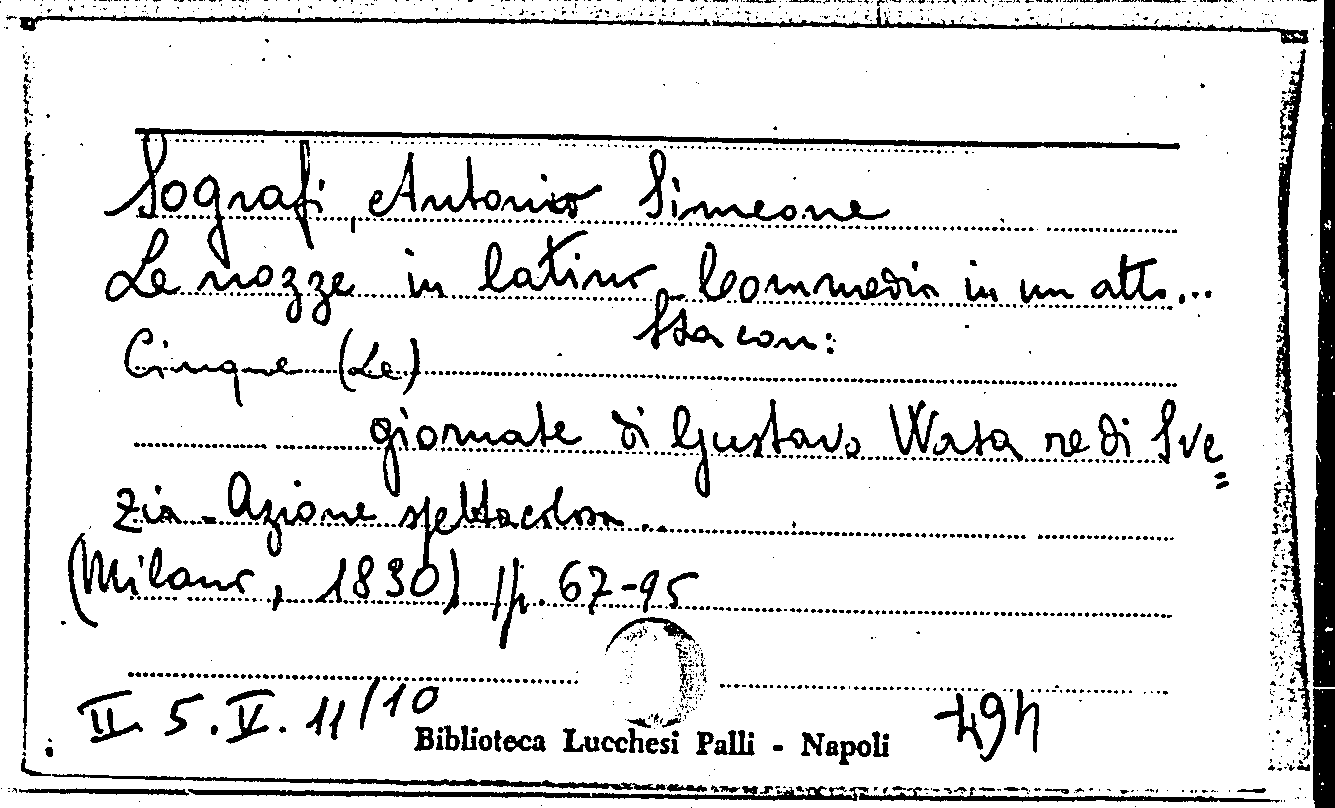 Sografi, Antonio Simeone
Le nozze in latino. Commedia in un atto...
Sta con:
Cinque (Le)
giornate di Gustavo Wasa re di Sve=
zia - Azione spettacolosa...
(Milano, 1830) pp. 67-95
II. 5. V. 11/10
Biblioteca Lucchesi Palli - Napoli